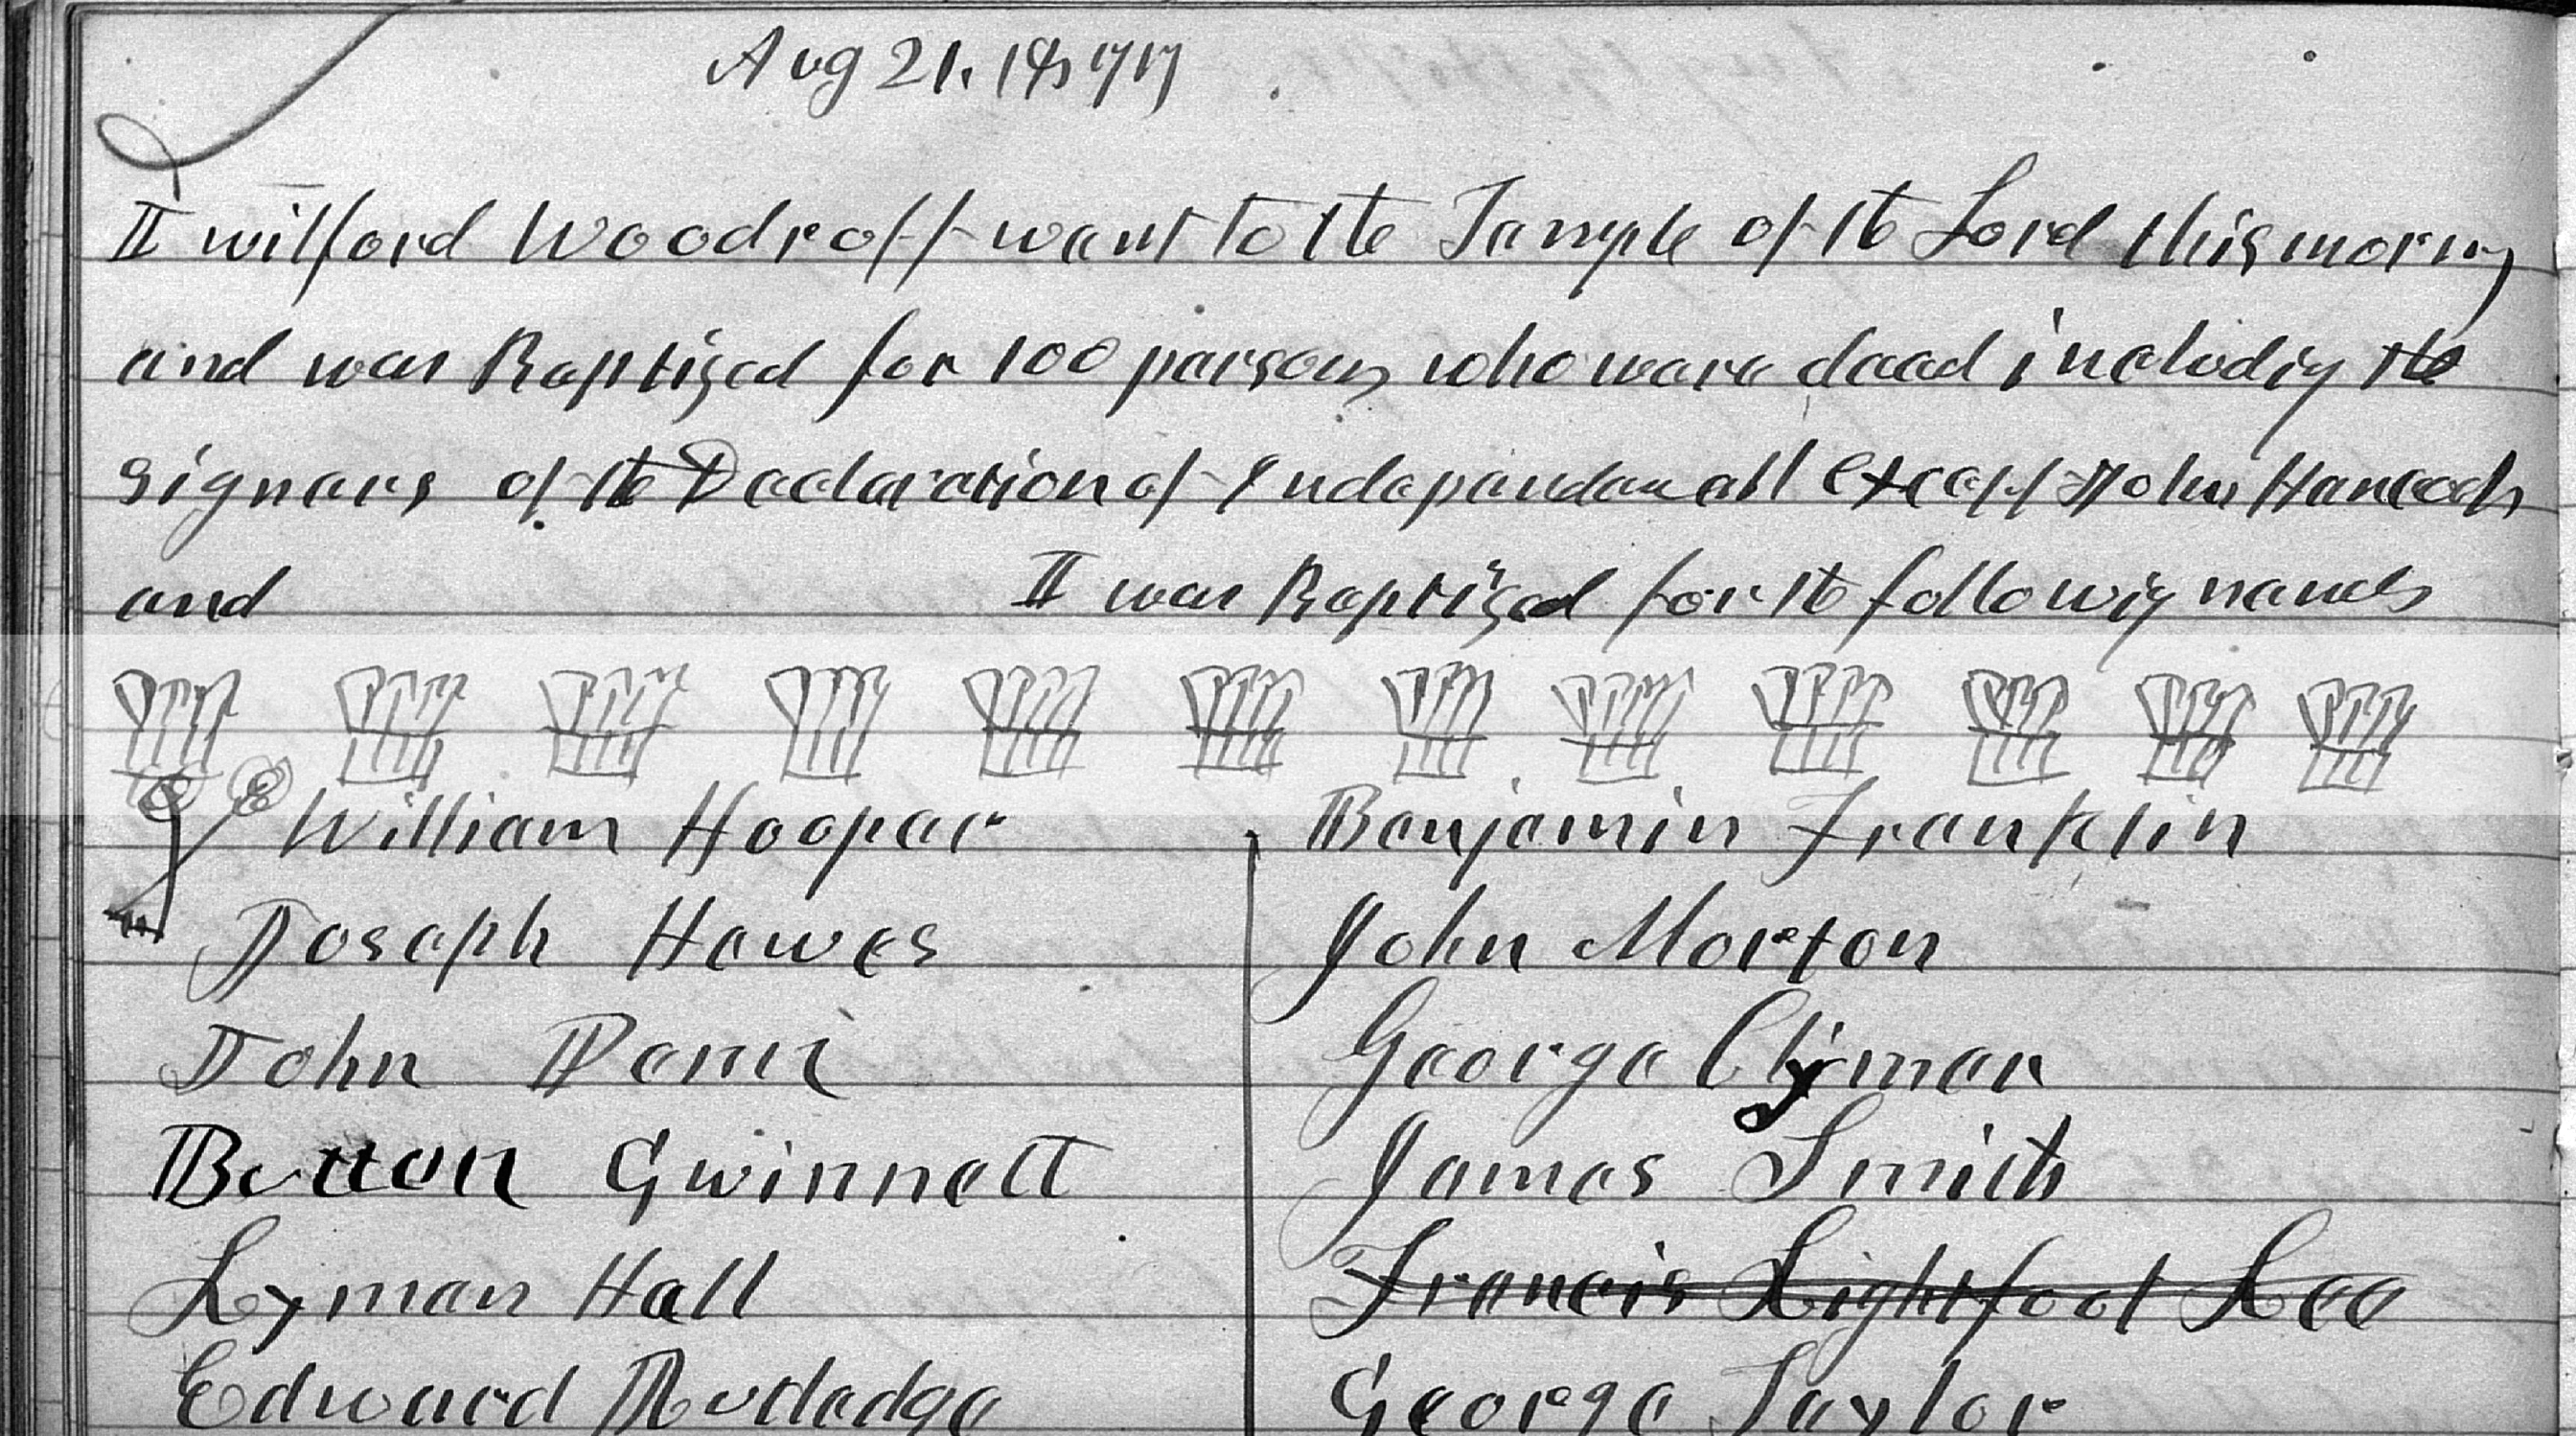 Aug 21, 1877
I wilford Woodroff went to the Temple of the Lord this mornig
and was Baptized for 100 persons who were dead includig the
signers of the Declaration of Independance all except John Hancock
and I was Baptized for the followig names
William Hooper Benjamin Franklin
Joseph Hewes John Morton
John Penn George Clymer
Button Gwinnett James Smith
Lyman Hall Francis Lightfoot Lee
Edward Rutledge George Taylor